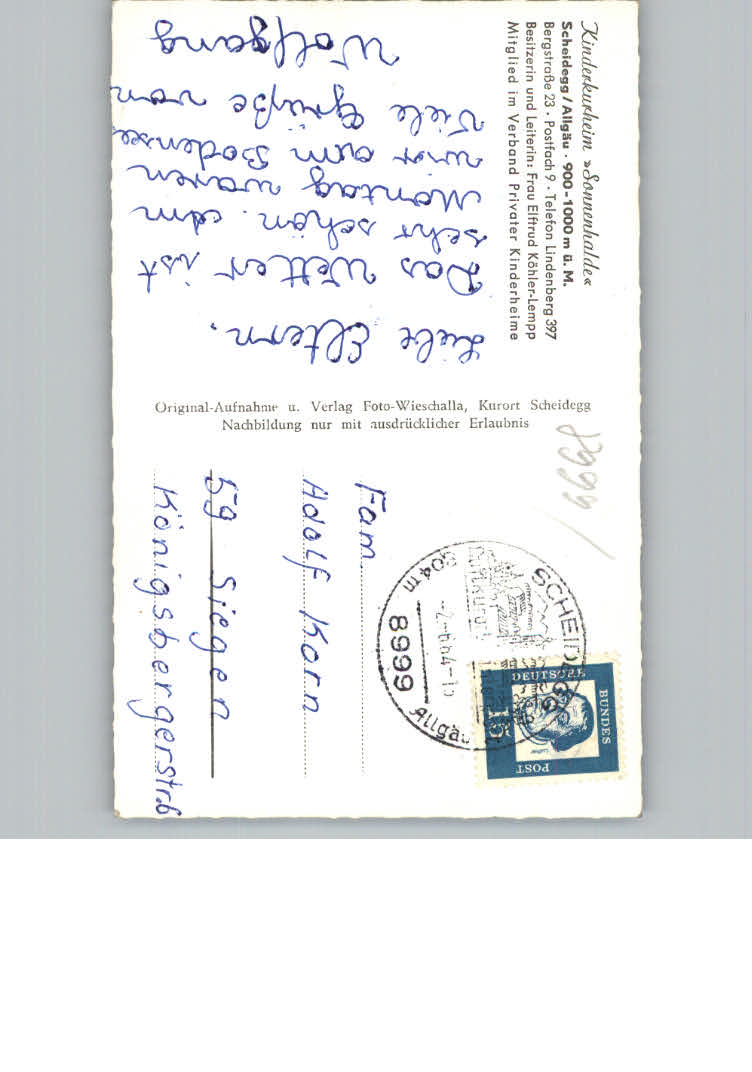 Kinderkurheim »Sonnenhalde«
Scheidegg/Allgäu · 900-1000 m ü. M.
Bergstraße 23 · Postfach 9 · Telefon Lindenberg 397
Besitzerin und Leiterin: Frau Elftrud Köhler-Lempp
Mitglied im Verband Privater Kinderheime
Liebe Eltern.
Das Wetter ist
sehr schön. Am
Montag waren
wir am Bodensee.
Viele Grüße von
Wolfgang
Original-Aufnahme u. Verlag Foto-Wieschalla, Kurort Scheidegg
Nachbildung nur mit ausdrücklicher Erlaubnis
8999
Fam.
Adolf Korn
59 Siegen
Königsbergerstr.6
SCHEIDEGG
804 m
8999
Allgäu
DEUTSCHE
BUNDES
POST
Luther